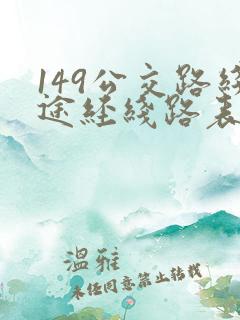 149公交路綫
途経綫路表
温雅
未任同意禁止转载